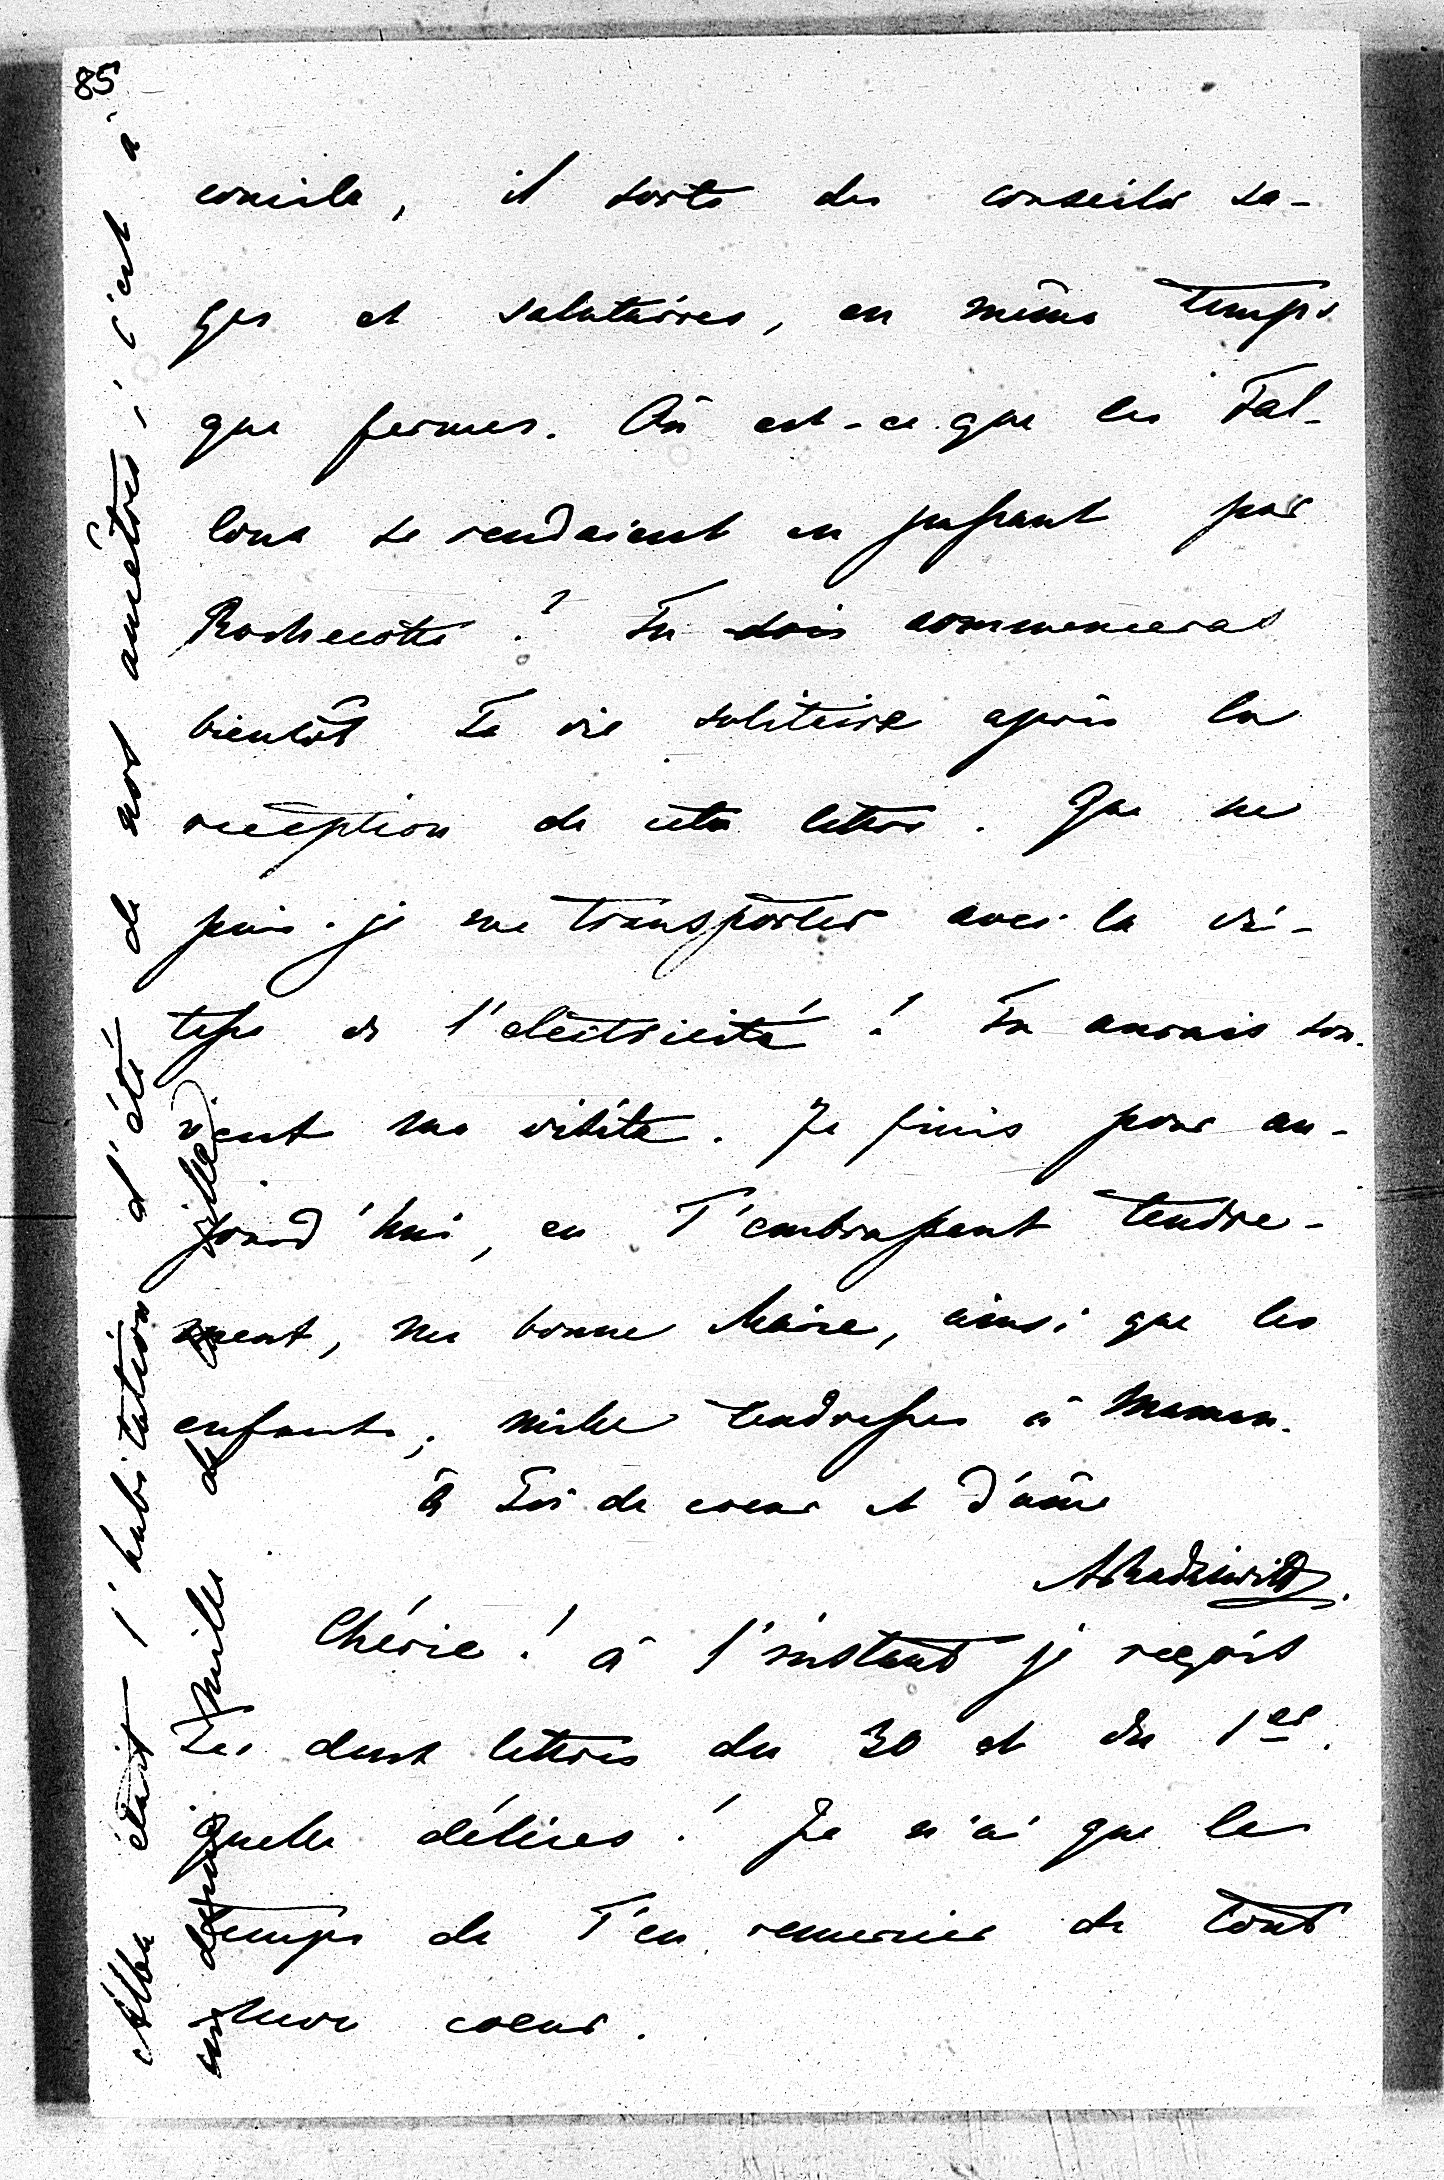 85
concile, il sorte des conseils sa-
ges et salutaires, en même temps
que fermes. Où est-ce que les Tal-
lons se rendaient en passant par
Rochecotte ? Tu dois commenceras
bientôt Ta vie solitaire après la
réception de cette lettre. Que ne
puis-je me transporter avec la vi-
tesse de l'électricité ! Tu aurais sou-
vent ma visite. Je finis pour au-
jourd'hui, en T'embrassant tendre-
ment, ma bonne chère, ainsi que les
enfants, mille tendresses à Maman.
à Toi de coeur et d'âme
ARadziwill.
Chérie ! à l'instant je reçois
Tes deux lettres du 30 et du 1er.
Quelle délices ! Je n'ai que le
temps de T'en remercier de tout
mon coeur.
Alba était l'habitation d'été de nos ancêtres; c'est à
un demi mille de